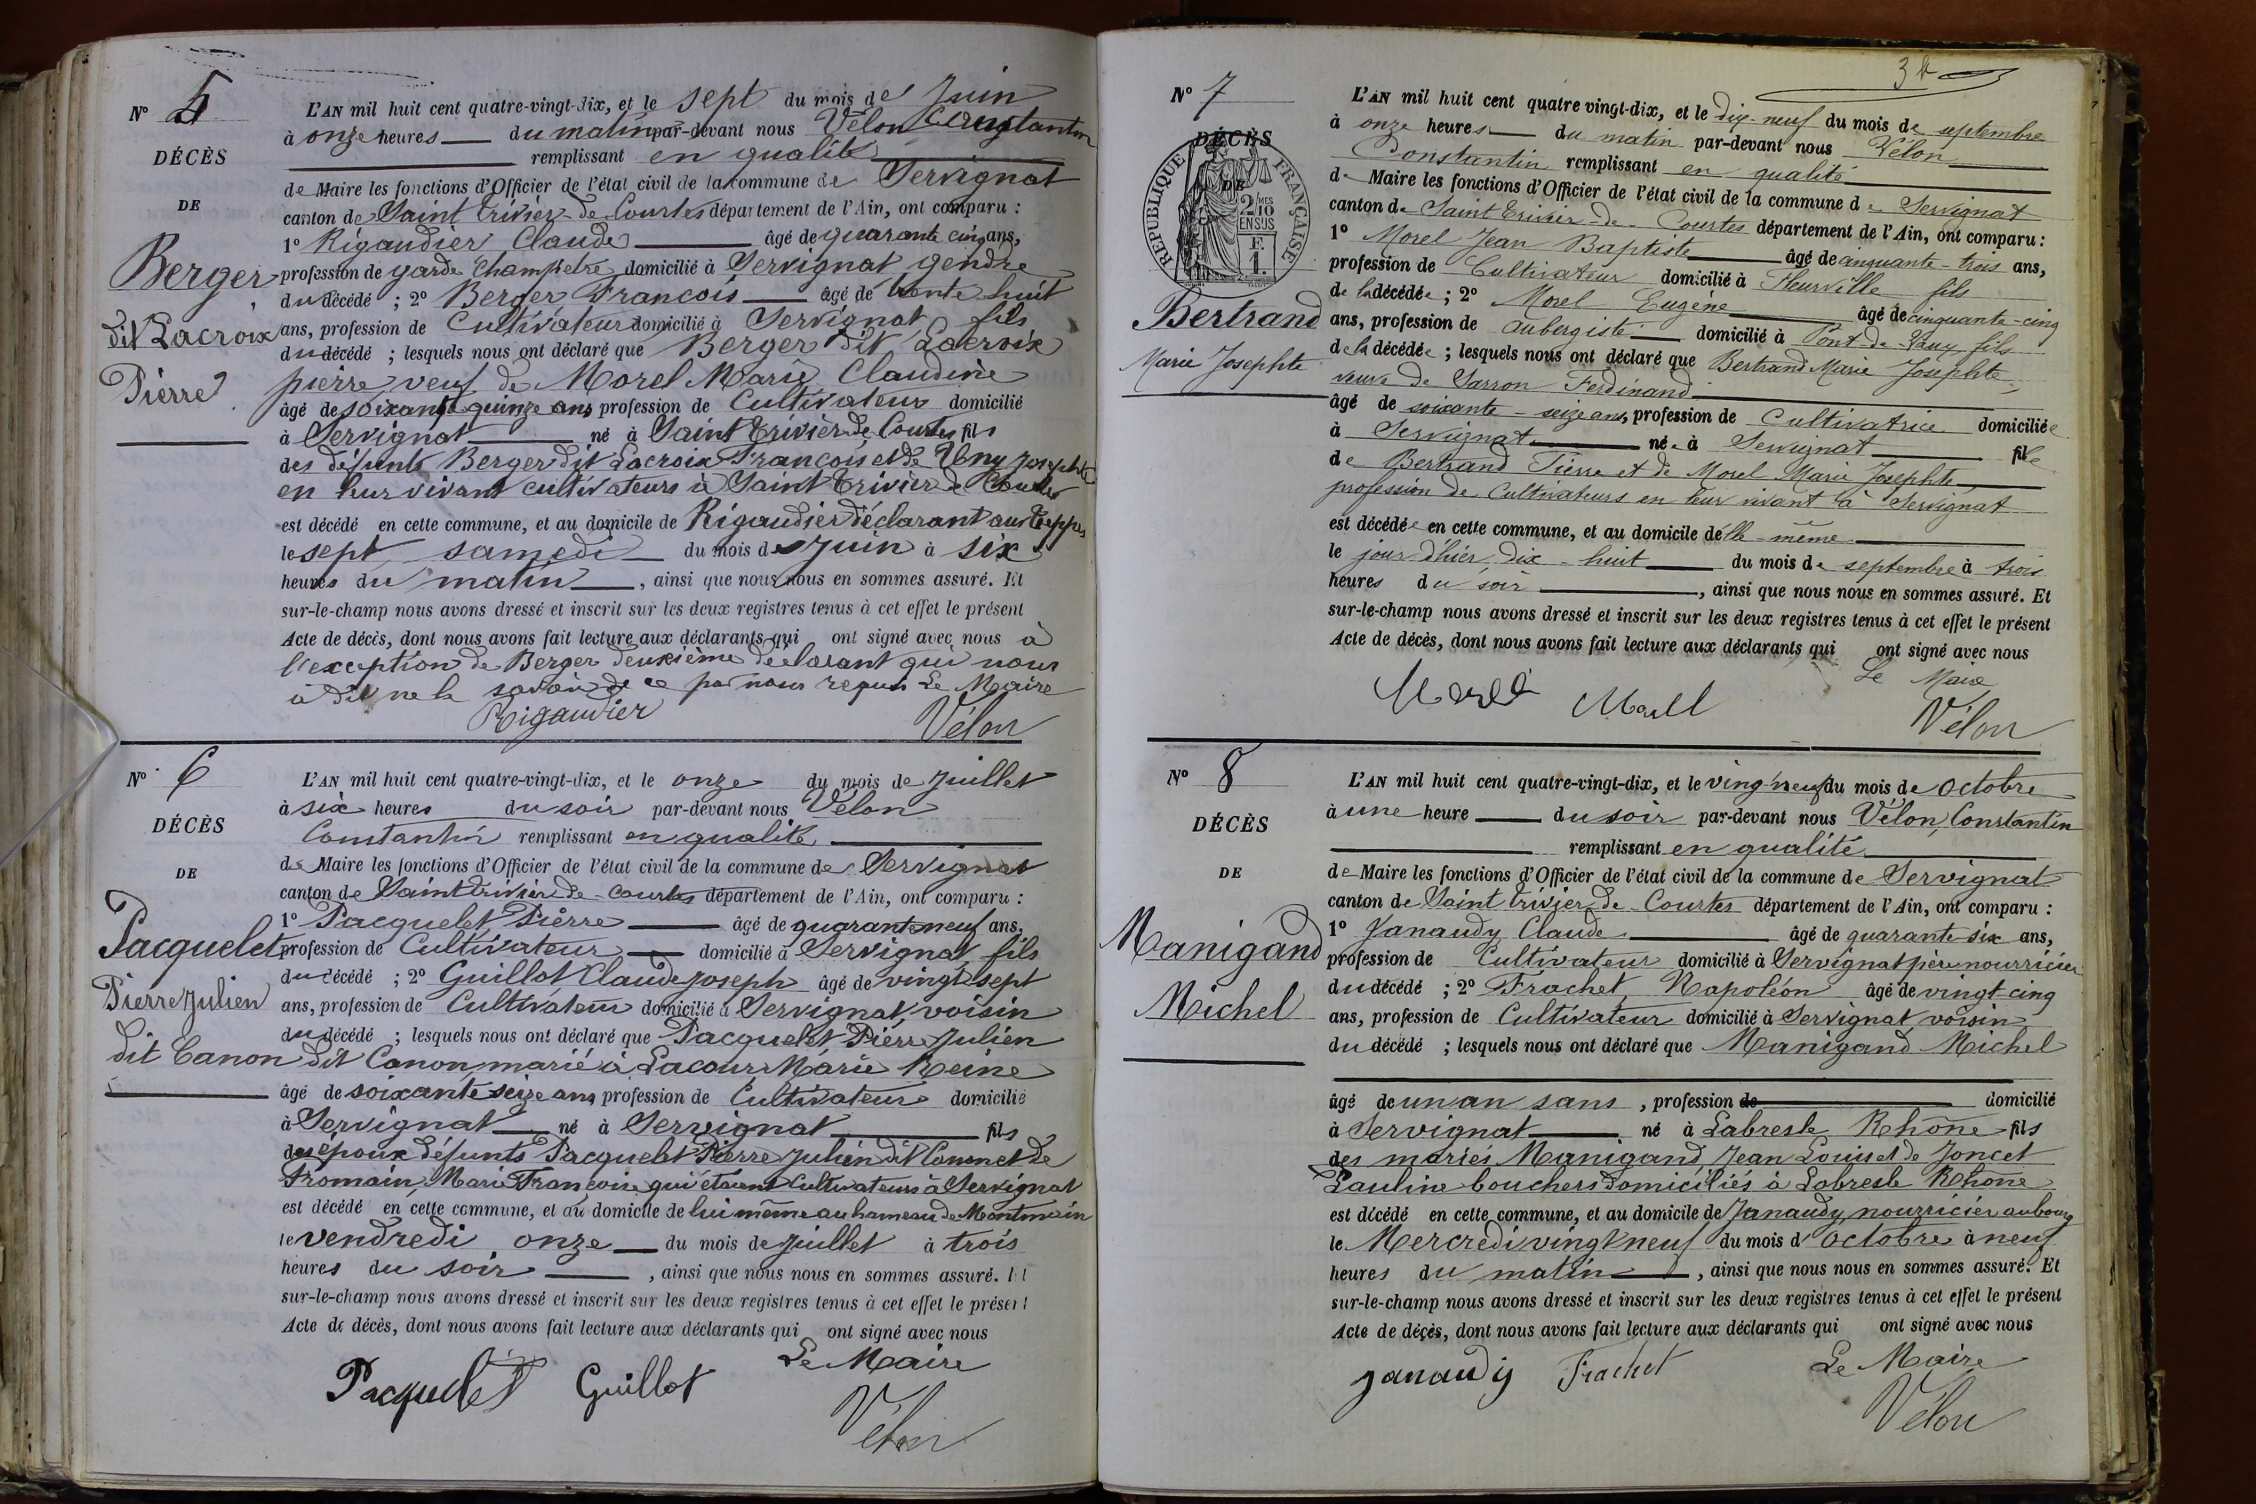 N° 5
DÉCÈS
DE
Berger
dit Lacroix
Pierre
L'AN mil huit cent quatre-vingt-dix, et le sept du mois de Juin
à onze heures du matin par-devant nous Vélon Constantin
remplissant en qualité
de Maire les fonctions d'Officier de l'état civil de la commune de Servignat
canton de Saint Trivier de Courtes département de l'Ain, ont comparu :
1° Rigaudier Claude âgé de quarante cinq ans,
profession de garde champêtre domicilié à Servignat gendre
du décédé ; 2° Berger François âgé de trente huit
ans, profession de Cultivateur domicilié à Servignat fils
du décédé ; lesquels nous ont déclaré que Berger dit Lacroix
pierre veuf de Morel Marie Claudine
âgé de soixante quinze ans profession de Cultivateur domicilié
à Servignat né à Saint Trivier de Courtes fils
des défunts Berger dit Lacroix François et de Josephte
en leur vivant cultivateurs à Saint Trivier de Courtes
est décédé en cette commune, et au domicile de Rigaudier déclarant aux Teppes
le sept samedi du mois de Juin à six
heures du matin, ainsi que nous nous en sommes assuré. Et
sur-le-champ nous avons dressé et inscrit sur les deux registres tenus à cet effet le présent
Acte de décès, dont nous avons fait lecture aux déclarants qui ont signé avec nous à
l'exception de Berger deuxième déclarant qui nous
à dit ne le savoir de ce par nous requis Le Maire
Rigaudier Vélon
N° 6
DÉCÈS
DE
Pacquelet
Pierre Julien
dit Canon
L'AN mil huit cent quatre-vingt-dix, et le onze du mois de Juillet
à six heures du soir par-devant nous Vélon
Constantin remplissant en qualité
de Maire les fonctions d'Officier de l'état civil de la commune de Servignat
canton de Saint Trivier de Courtes département de l'Ain, ont comparu :
1° Pacquelet Pierre âgé de quarante neuf ans,
profession de Cultivateur domicilié à Servignat fils
du décédé ; 2° Guillot Claude Joseph âgé de vingt sept
ans, profession de Cultivateur domicilié à Servignat voisin
du décédé ; lesquels nous ont déclaré que Pacquelet Pierre Julien
dit Canon marié à Lacour Marie Reine
âgé de soixante seize ans profession de Cultivateur domicilié
à Servignat né à Servignat fils
des époux défunts Pacquelet Pierre Julien dit Canon et de
Fromain, Marie Françoise qui étaient Cultivateurs à Servignat
est décédé en cette commune, et au domicile de lui même au hameau de Montmain
le vendredi onze du mois de Juillet à trois
heures du soir, ainsi que nous nous en sommes assuré. Et
sur-le-champ nous avons dressé et inscrit sur les deux registres tenus à cet effet le présent
Acte de décès, dont nous avons fait lecture aux déclarants qui ont signé avec nous
Le Maire
Pacquelet Guillot
Vélon
N° 7
DÉCÈS
DE
RÉPUBLIQUE FRANÇAISE
2/10 MES EN SUS
F. 1.
Bertrand
Marie Josephte
L'AN mil huit cent quatre vingt-dix, et le dix-neuf du mois de septembre
à onze heures du matin par-devant nous Vélon
Constantin remplissant en qualité
de Maire les fonctions d'Officier de l'état civil de la commune de Servignat
canton de Saint Trivier-de-Courtes département de l'Ain, ont comparu :
1° Morel Jean Baptiste âgé de cinquante-trois ans,
profession de Cultivateur domicilié à Fleurville fils
de la décédée ; 2° Morel Eugène âgé de cinquante-cinq
ans, profession de aubergiste domicilié à Pont-de-Vaux fils
de la décédée ; lesquels nous ont déclaré que Bertrand Marie Josephte
veuve de Sarron Ferdinand
âgé de soixante-seize ans, profession de Cultivatrice domiciliée
à Servignat née à Servignat fille
de Bertrand Pierre et de Morel Marie Josephte
profession de Cultivateurs en leur vivant à Servignat
est décédée en cette commune, et au domicile d'elle-même
le jour d'hier dix-huit du mois de septembre à trois
heures du soir, ainsi que nous nous en sommes assuré. Et
sur-le-champ nous avons dressé et inscrit sur les deux registres tenus à cet effet le présent
Acte de décès, dont nous avons fait lecture aux déclarants qui ont signé avec nous
Le Maire
Morel Morel Vélon
N° 8
DÉCÈS
DE
Manigand
Michel
L'AN mil huit cent quatre-vingt-dix, et le vingt neuf du mois de Octobre
à une heure du soir par-devant nous Vélon Constantin
remplissant en qualité
de Maire les fonctions d'Officier de l'état civil de la commune de Servignat
canton de Saint Trivier de Courtes département de l'Ain, ont comparu :
1° Janaudy Claude âgé de quarante six ans,
profession de Cultivateur domicilié à Servignat père nourricier
du décédé ; 2° Frachet Napoléon âgé de vingt cinq
ans, profession de Cultivateur domicilié à Servignat voisin
du décédé ; lesquels nous ont déclaré que Manigand Michel
âgé de un an sans, profession de domicilié
à Servignat né à Labresle Rhône fils
des mariés Manigand Jean Louis et de Joncet
Pauline bouchers domiciliés à Labresle Rhône
est décédé en cette commune, et au domicile de Janaudy nourricier au bourg
le Mercredi vingt neuf du mois d'octobre à neuf
heures du matin, ainsi que nous nous en sommes assuré. Et
sur-le-champ nous avons dressé et inscrit sur les deux registres tenus à cet effet le présent
Acte de décès, dont nous avons fait lecture aux déclarants qui ont signé avec nous
Janaudy Frachet Le Maire
Vélon